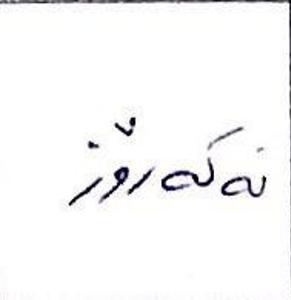 نەکەرۆز